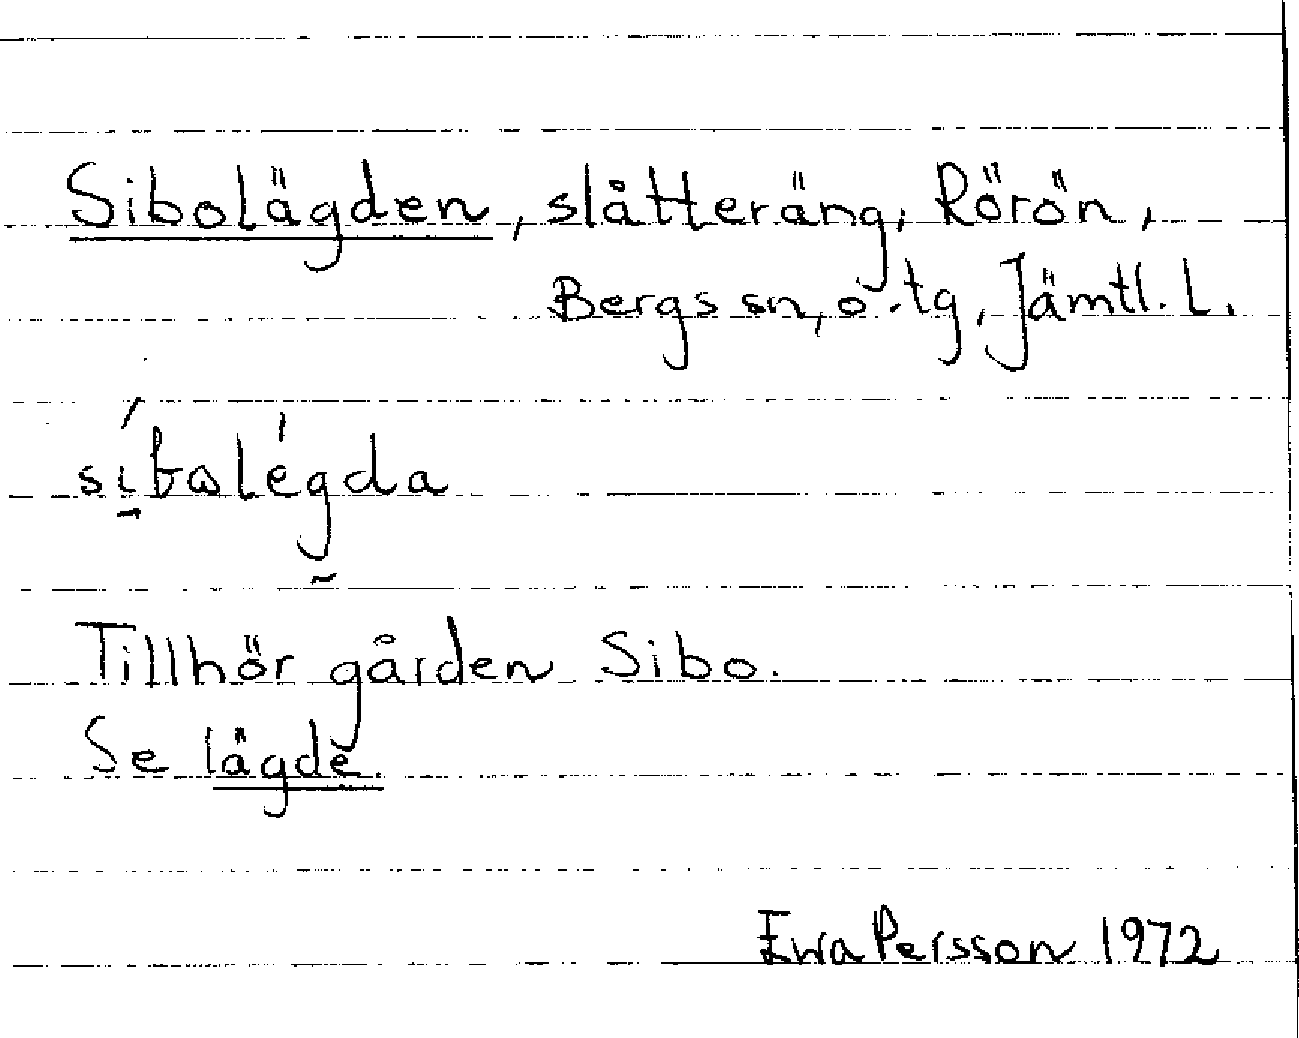 Sibolägden, slåtteräng, Rörön,
Bergs sn, o. tg, Jämtl. l.
síbωlégda
Tillhör gården Sibo.
Se lägde.
Ewa Persson 1972